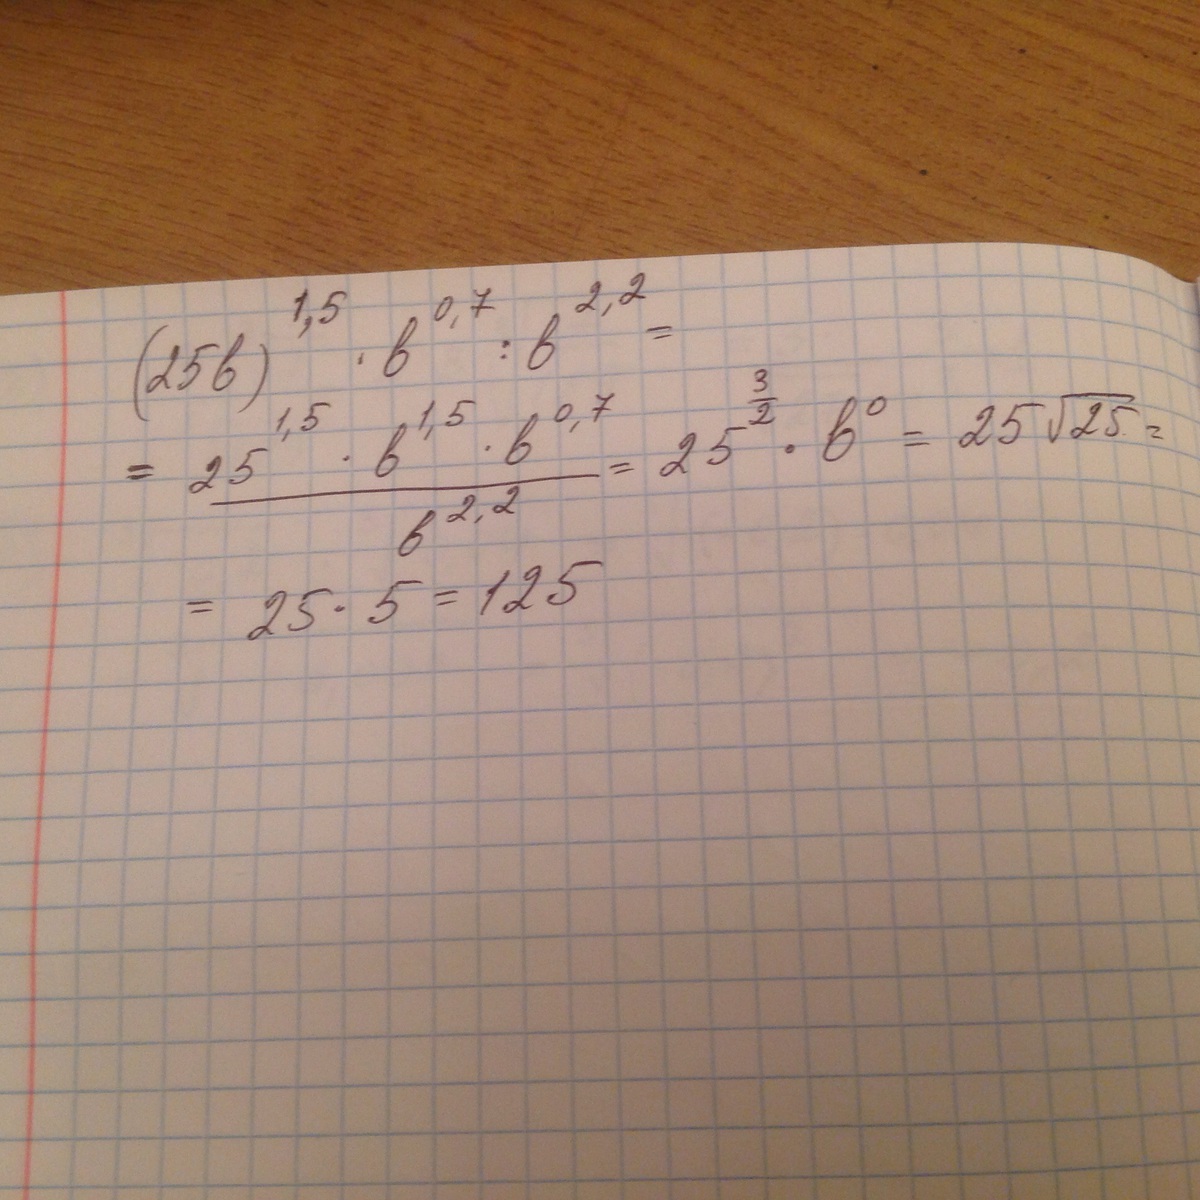 (25b)^{1,5} · b^{0,7} : b^{2,2} =
= \frac{25^{1,5} · b^{1,5} · b^{0,7}}{b^{2,2}} = 25^{\frac{3}{2}} · b^0 = 25√25 =
= 25 · 5 = 125